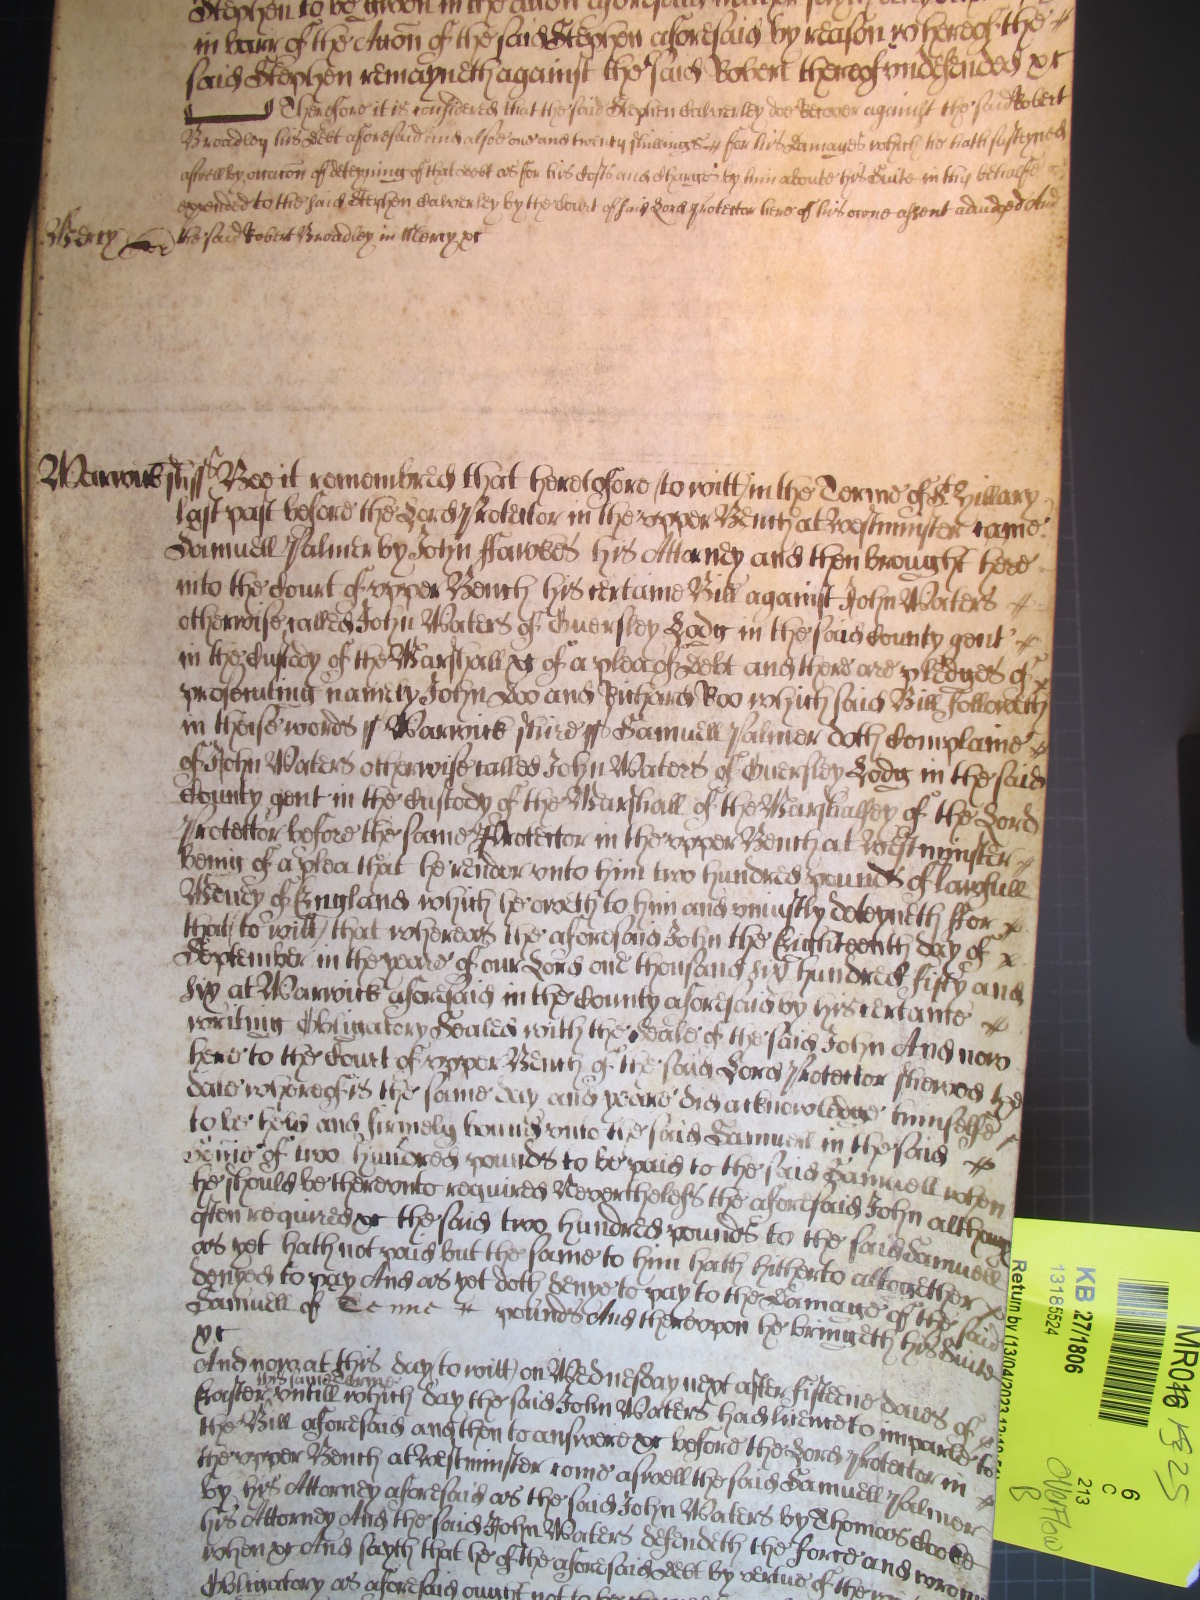 Stephen to be given in the accon aforesaid
in barr of the Accon of the said Stephen aforesaid by reason whereof the
said Stephen remayneth against the said Robert thereof undefended xc
Therefore it is considered that the said Stephen Calverley doe Recover against the said Robert
Broadley his Debt aforesaid and alsoe one and twenty shillings for his Damages which he hath susteyned
aswell by occacon of deteyning of that debt as for his Costs and charges by him aboute his Suite in this behalfe
expended to the said Stephen Calverley by the Court of said Lord Protector here of his owne assent adiudged And
Mercy
the said Robert Broadley in Mercy xc
Warwick shire ss Bee it remembred that heretofore (to witt) in the Terme of St Hillary
last past before the Lord Protector in the upper Bench at Westminster came
Samuell Palmer by John ffawkes his Attorney and then brought here
into the Court of upper Bench his certaine Bill against John Waters
otherwise called John Waters of Lodg in the said County gent
in the Custody of the Marshall xc of a plea of Debt and there are pledges of
prosecuting namely John Doo and Richard Roo which said Bill followeth
in these words ss Warwick shire ss Samuell Palmer doth Complaine
of John Waters otherwise called John Waters of Lodg in the said
County gent in the Custody of the Marshall of the Marshalsey of the Lord
Protector before the same Protector in the upper Bench at Westminster
being of a plea that he render unto him two hundred pounds of lawfull
Money of England which he oweth to him and uniustly deteyneth ffor
that (to witt) that whereas the aforesaid John the Eighteenth day of
September in the yeare of our Lord one thousand six hundred fifty and
six at Warwick aforesaid in the County aforesaid by his certaine
writing Obligatory Sealed with the seale of the said John And now
here to the Court of upper Bench of the said Lord Protector shewed the
date whereof is the same day and yeare did acknowledge himselfe
to be held and firmely bound unto the said Samuell in the said
Some of two hundred pounds to be paid to the said Samuell when
he should be thereunto required Neverthelesse the aforesaid John although
often required xc the said two hundred pounds to the said Samuell
as yet hath not paid but the same to him hath hitherto altogether
denyed to pay And as yet doth denye to pay to the Damage of the said
Samuell of Tenne pounds And thereupon he bringeth his Suite
xc
And now at this day (to witt) on Wednesday next after fifteene daies of
this same Terme
Easter untill which day the said John Waters had licence to imparle to
the Bill aforesaid and then to answere xc before the Lord Protector in
the upper Bench at Westminster come aswell the said Samuell Palmer
by his Attorney aforesaid as the said John Waters by Thomas Cooke
his Attorney And the said John Waters defendeth the force and wrong
when xc And sayth that he of the aforesaid debt by vertue of the
Obligatory as aforesaid ought not to be
MR016
KB 27/1806
13185524
Return by (13/04/2023
6
C
213
Overflow
B